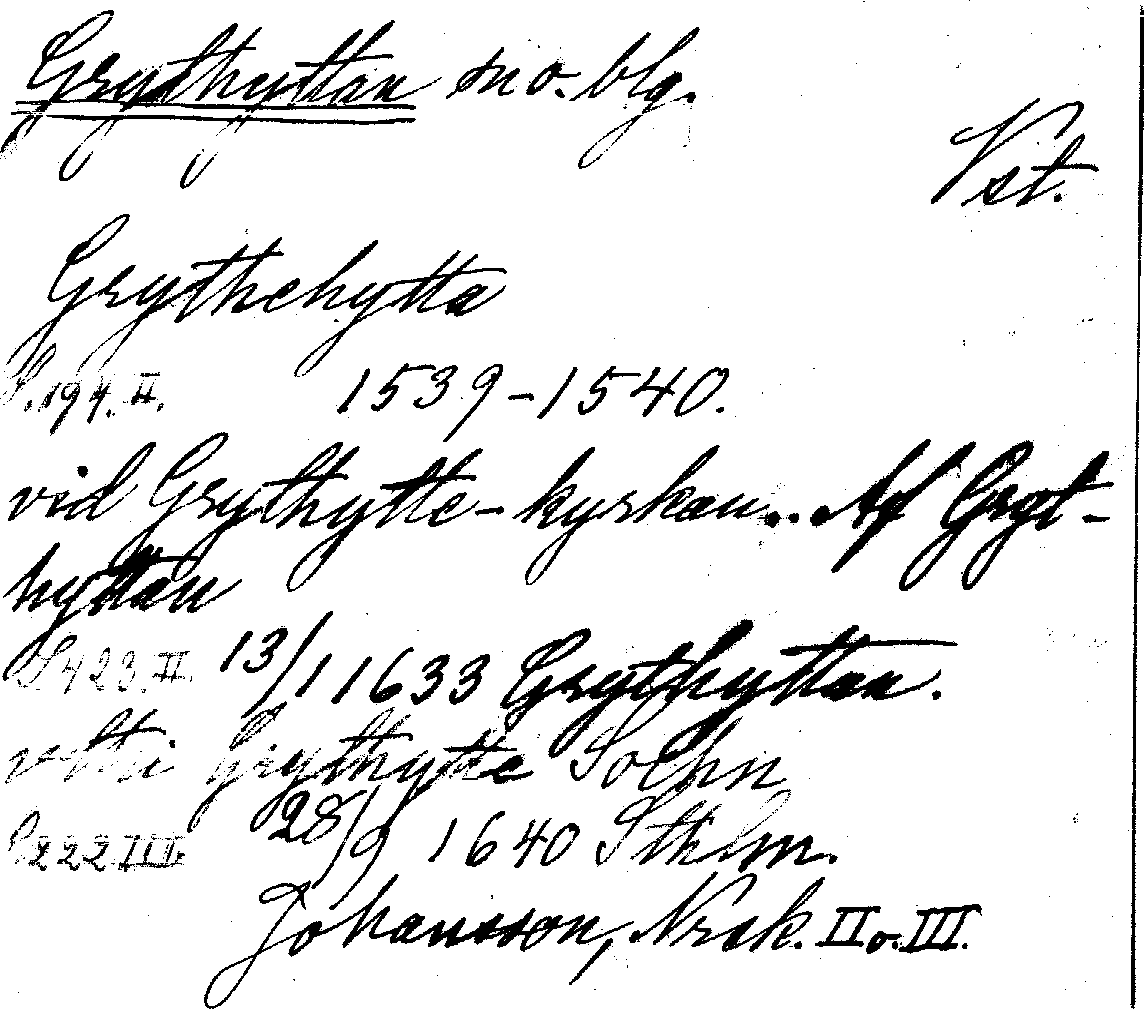 Grythyttan sn o. blg.
Vst.
Grythehytta
S. 194. II. 1539-1540.
vid Grythytte-kyrkan... Af Gryt-
hyttan
S. 423. II. 13/1 1633 Grythyttan.
Grythytte Sochn
S. 222 III. 28/9 1640 Sthlm.
Johansson, Norsk. II o. III.